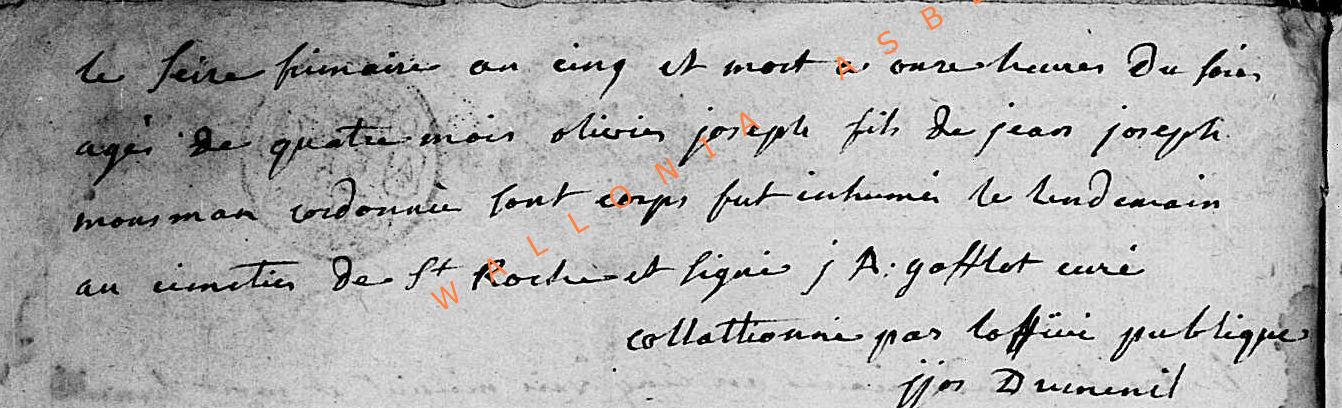 le seize frimaire an cinq est mort a onze heures du soir
agés de quatre mois olivier joseph fils de jean joseph
monsman cordonnie sont corps fut inhumés le lendemain
au cimetier de St Roche et signé j A: gofflot curé
collationné par loffice publique
jjos Dumenil
WALLONIA ASB